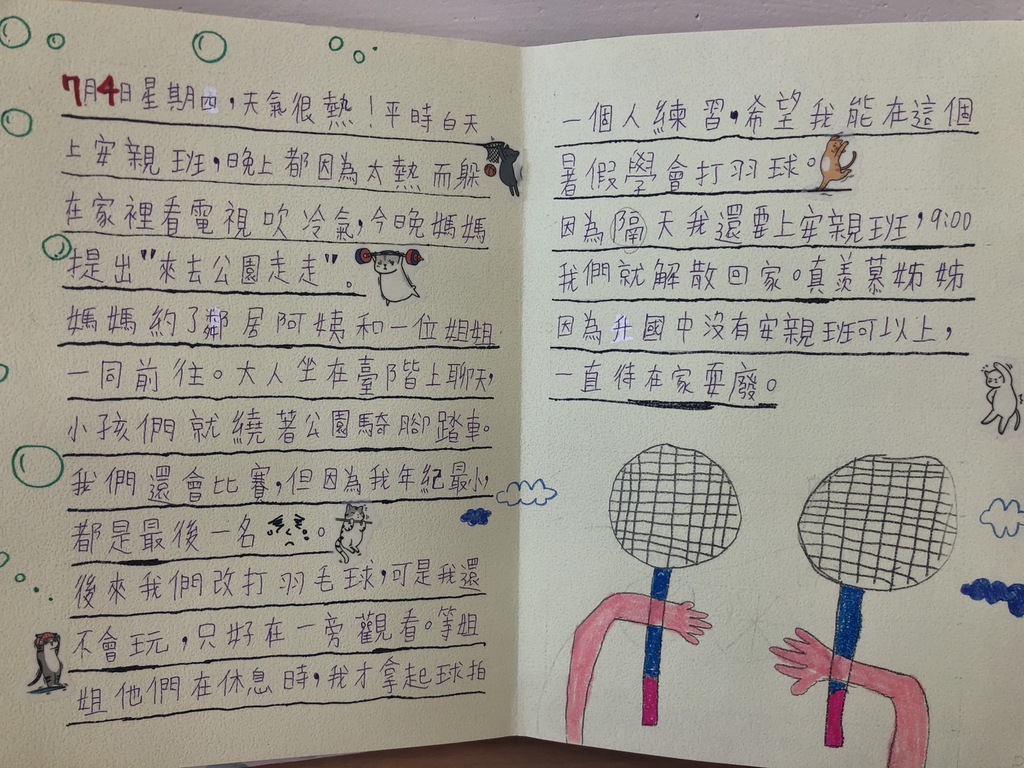 7月4日星期四,天氣很熱!平時白天
上安親班,晚上都因為太熱而躲
在家裡看電視吹冷氣,今晚媽媽
提出"來去公園走走"。
媽媽約了鄰居阿姨和一位姐姐
一同前往。大人坐在臺階上聊天,
小孩們就繞著公園騎腳踏車。
我們還會比賽,但因為我年紀最小,
都是最後一名。
後來我們改打羽毛球,可是我還
不會玩,只好在一旁觀看。等姐
姐他們在休息時,我才拿起球拍
一個人練習,希望我能在這個
暑假學會打羽球。
因為隔天我還要上安親班,9:00
我們就解散回家。真羨慕姊姊
因為升國中沒有安親班可以上,
一直待在家耍廢。